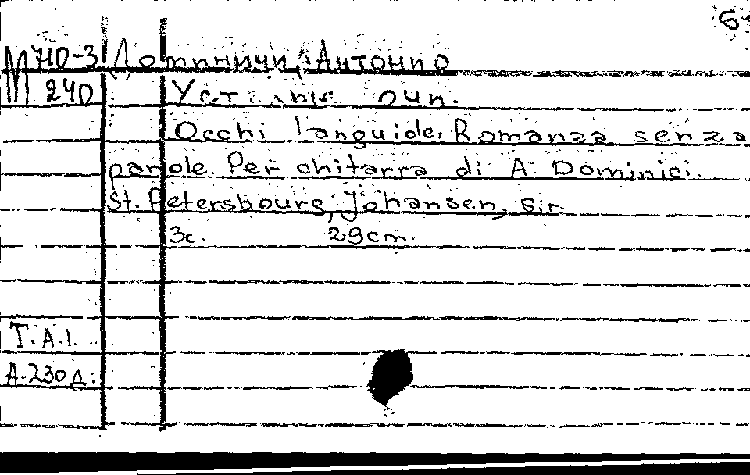 М 710-3 Доминичи, Антонио
240 Усталые очи.
Occhi languide. Romanza senza
parole Per chitarra di A Dominici.
St. Petersbourg, Johansen, s.r.
3с. 29cm.
Т.А.І.
А-230д.